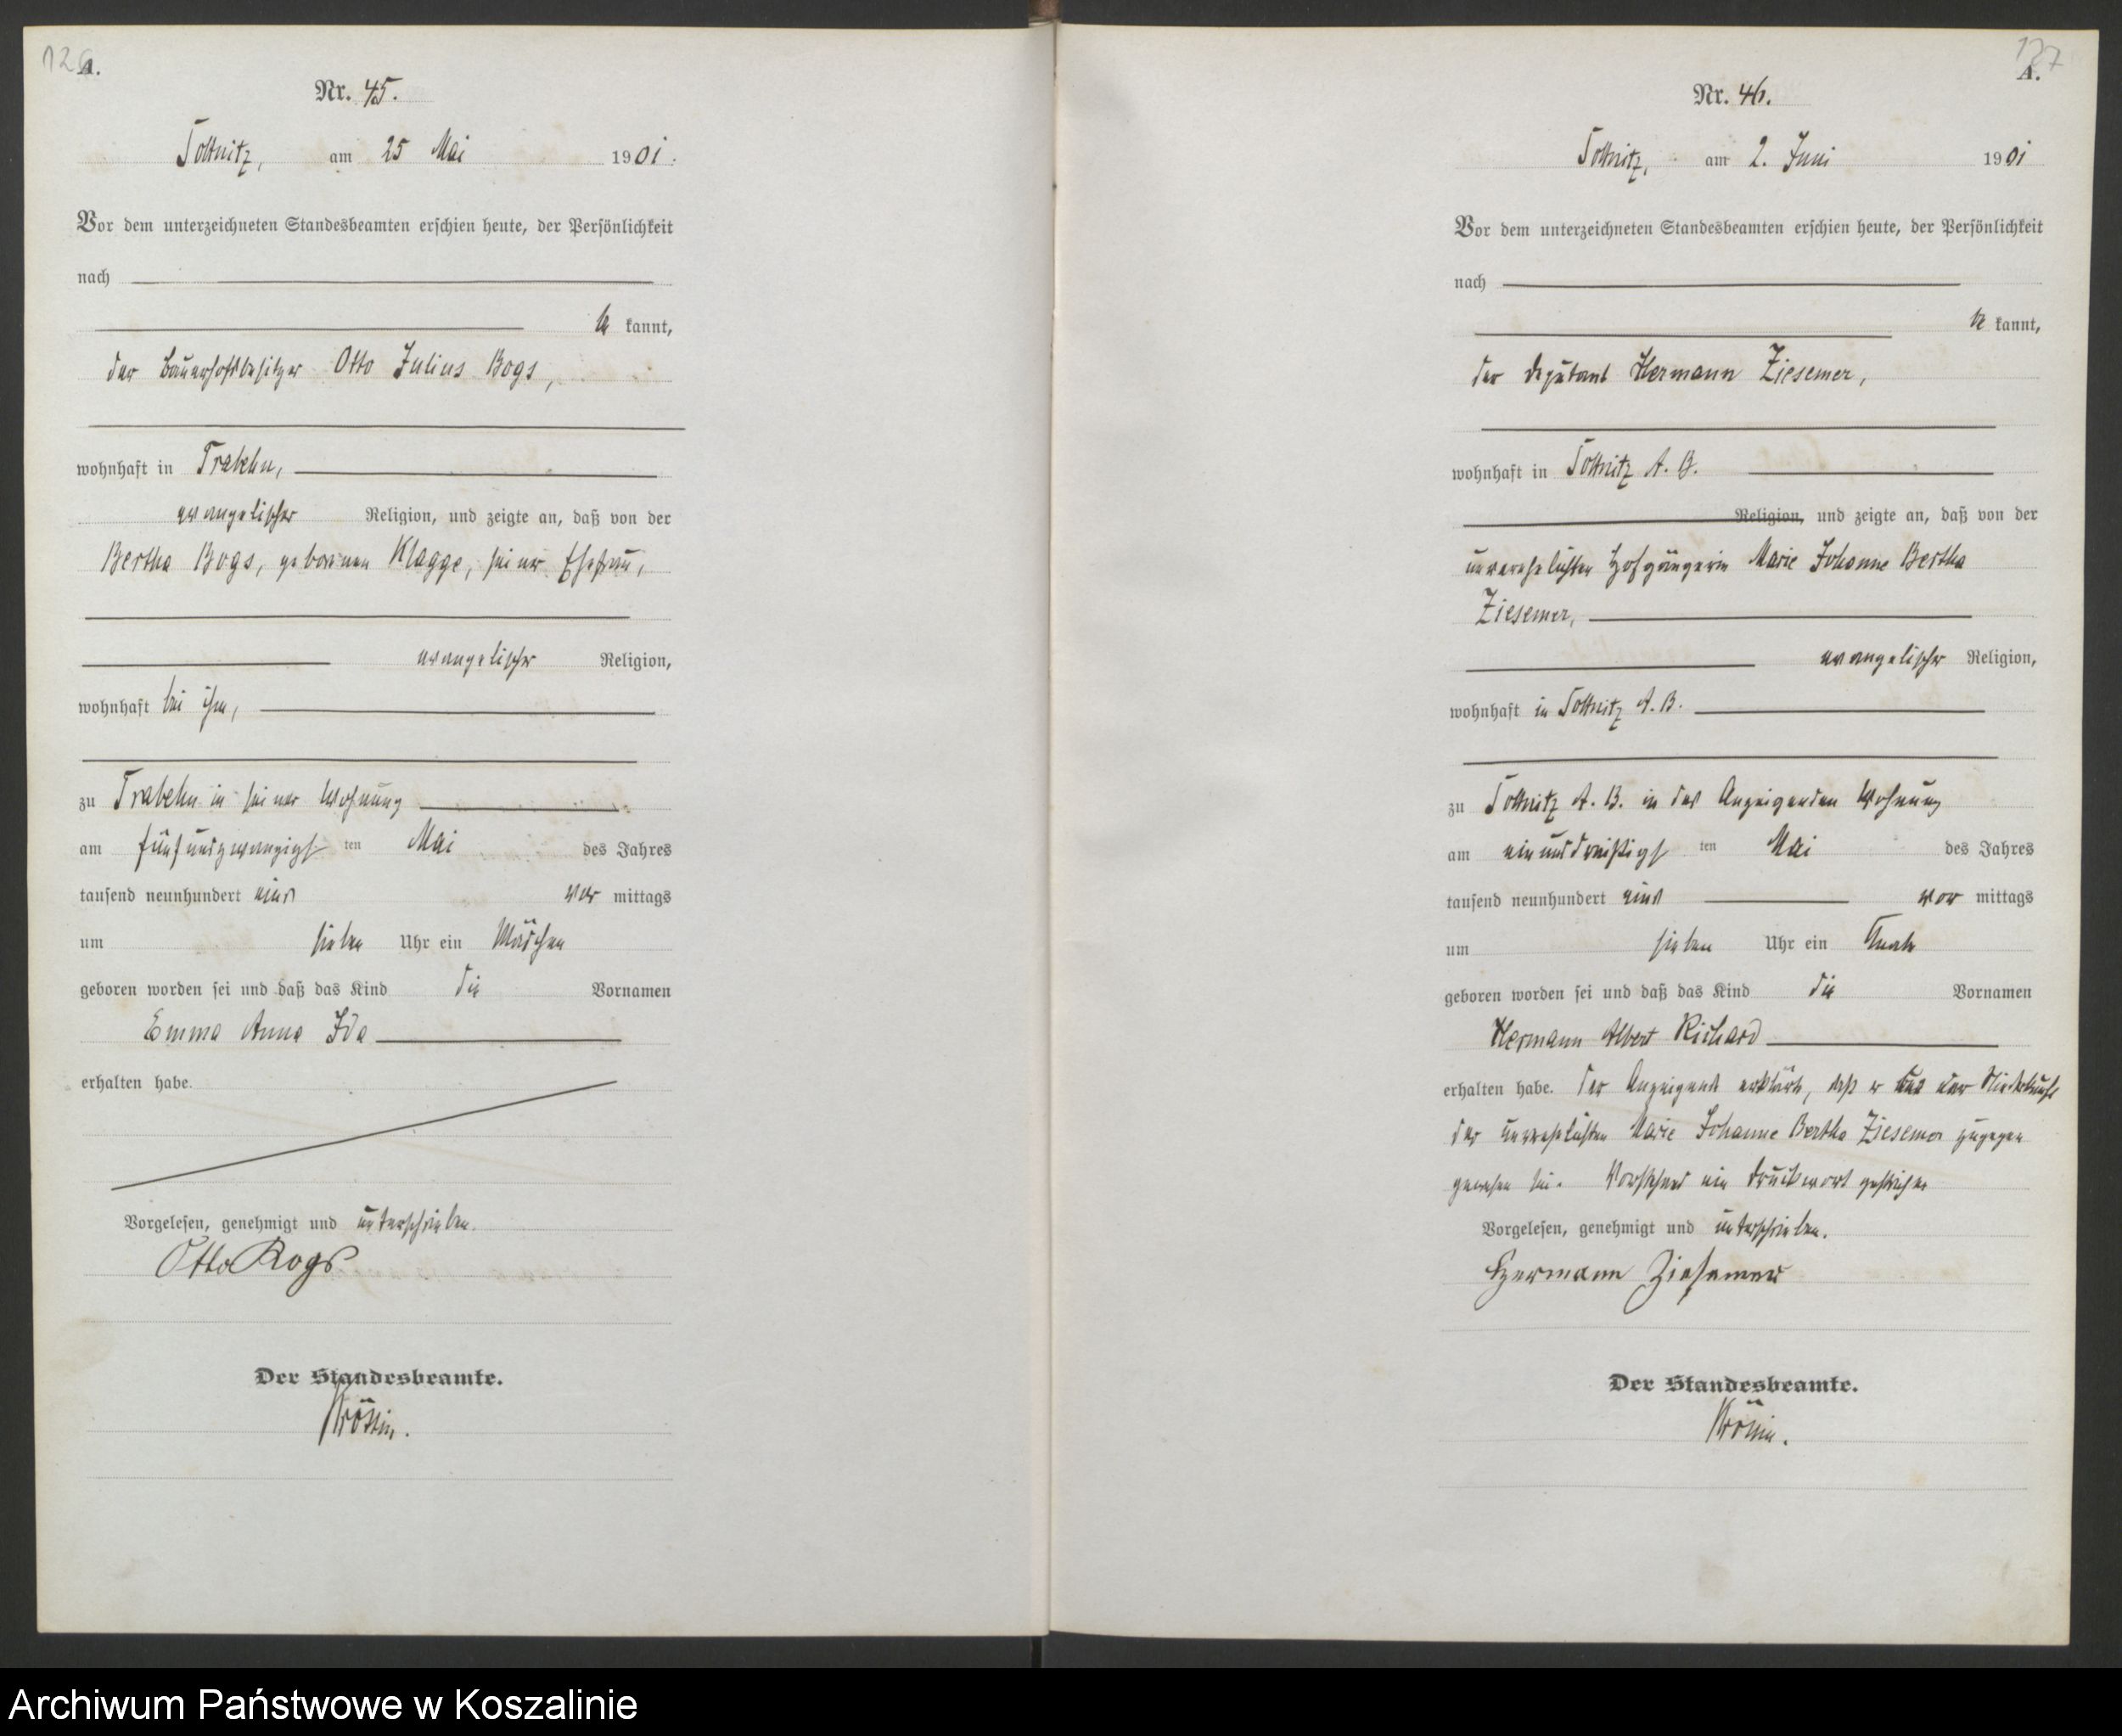 126
A.
Nr. 45.
Soltnitz, am 25 Mai 1901.
Vor dem unterzeichneten Standesbeamten erschien heute, der Persönlichkeit
nach
be kannt,
der Bauerhofsbesitzer Otto Julius Bogs,
wohnhaft in Trabehn,
evangelischer Religion, und zeigte an, daß von der
Bertha Bogs, geborenen Klagge, seiner Ehefrau,
evangelischer Religion,
wohnhaft bei ihm,
zu Trabehn in seiner Wohnung
am fünfundzwanzigsten Mai des Jahres
tausend neunhundert eins vor mittags
um sieben Uhr ein Mädchen
geboren worden sei und daß das Kind die Vornamen
Emma Anna Ida
erhalten habe.
Vorgelesen, genehmigt und unterschrieben.
Otto Bogs
Der Standesbeamte.
127
A.
Nr. 46.
Soltnitz, am 2. Juni 1901
Vor dem unterzeichneten Standesbeamten erschien heute, der Persönlichkeit
nach
be kannt,
der Deputant Hermann Ziesemer,
wohnhaft in Soltnitz A. B.
Religion, und zeigte an, daß von der
unverehelichten Hofgängerin Marie Johanne Bertha
Ziesemer,
evangelischer Religion,
wohnhaft in Soltnitz A. B.
zu Soltnitz A. B. in des Anzeigenden Wohnung
am einunddreißigsten Mai des Jahres
tausend neunhundert eins vor mittags
um sieben Uhr ein Knabe
geboren worden sei und daß das Kind die Vornamen
Hermann Albert Richard
erhalten habe. Der Anzeigende erklärte, daß er bei der Niederkunft
der unverehelichten Marie Johanne Bertha Ziesemer zugegen
gewesen sei. Vorstehend ein Druckwort gestrichen
Vorgelesen, genehmigt und unterschrieben.
Hermann Ziesemer
Der Standesbeamte.
Archiwum Państwowe w Koszalinie